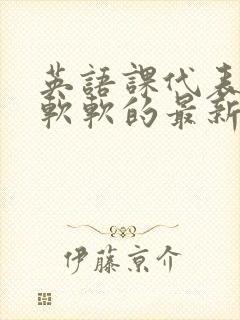 英語課代表
軟軟的最新
伊藤京介